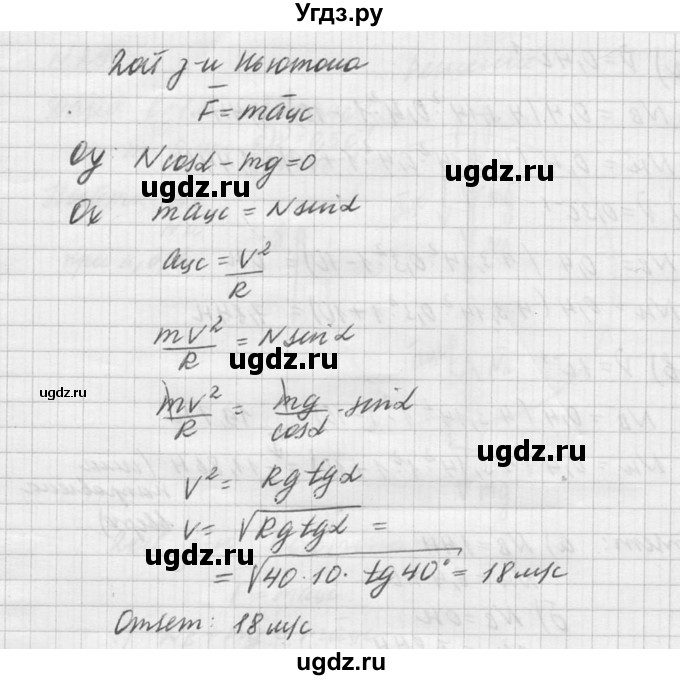 Угдз.ру
2ой з-н Ньютона
F̅ = ma̅цс
Oy: Ncosα - mg = 0
ugdz.ru ugdz.ru
Ox maцс = Nsinα
aцс = V²/R
mV²/R = Nsinα
ugdz.ru
ugdz.ru
mV²/R = mg/cosα · sinα
ugdz.ru
V² = Rgtgα
V = √Rgtgα =
ugdz.ru
= √40·10·tg40° = 18м/с
ugdz.ru
Ответ: 18м/с
ugdz.ru